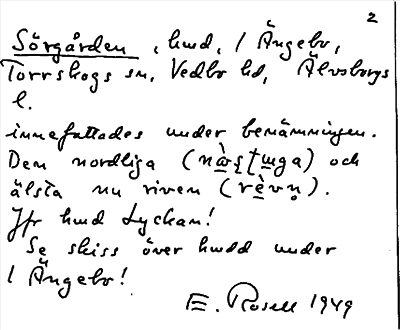 2
Sörgården, hmd, 1 Ängebo,
Torrskogs sn, Vedbo hd, Älvsborgs
l.
innefattades under benämningen.
Den nordliga ( ) och
älsta nu riven (rè̠vn̥).
Jfr hmd Lyckan!
Se skiss över hmdd under
1 Ängebo!
E. Rosell 1949